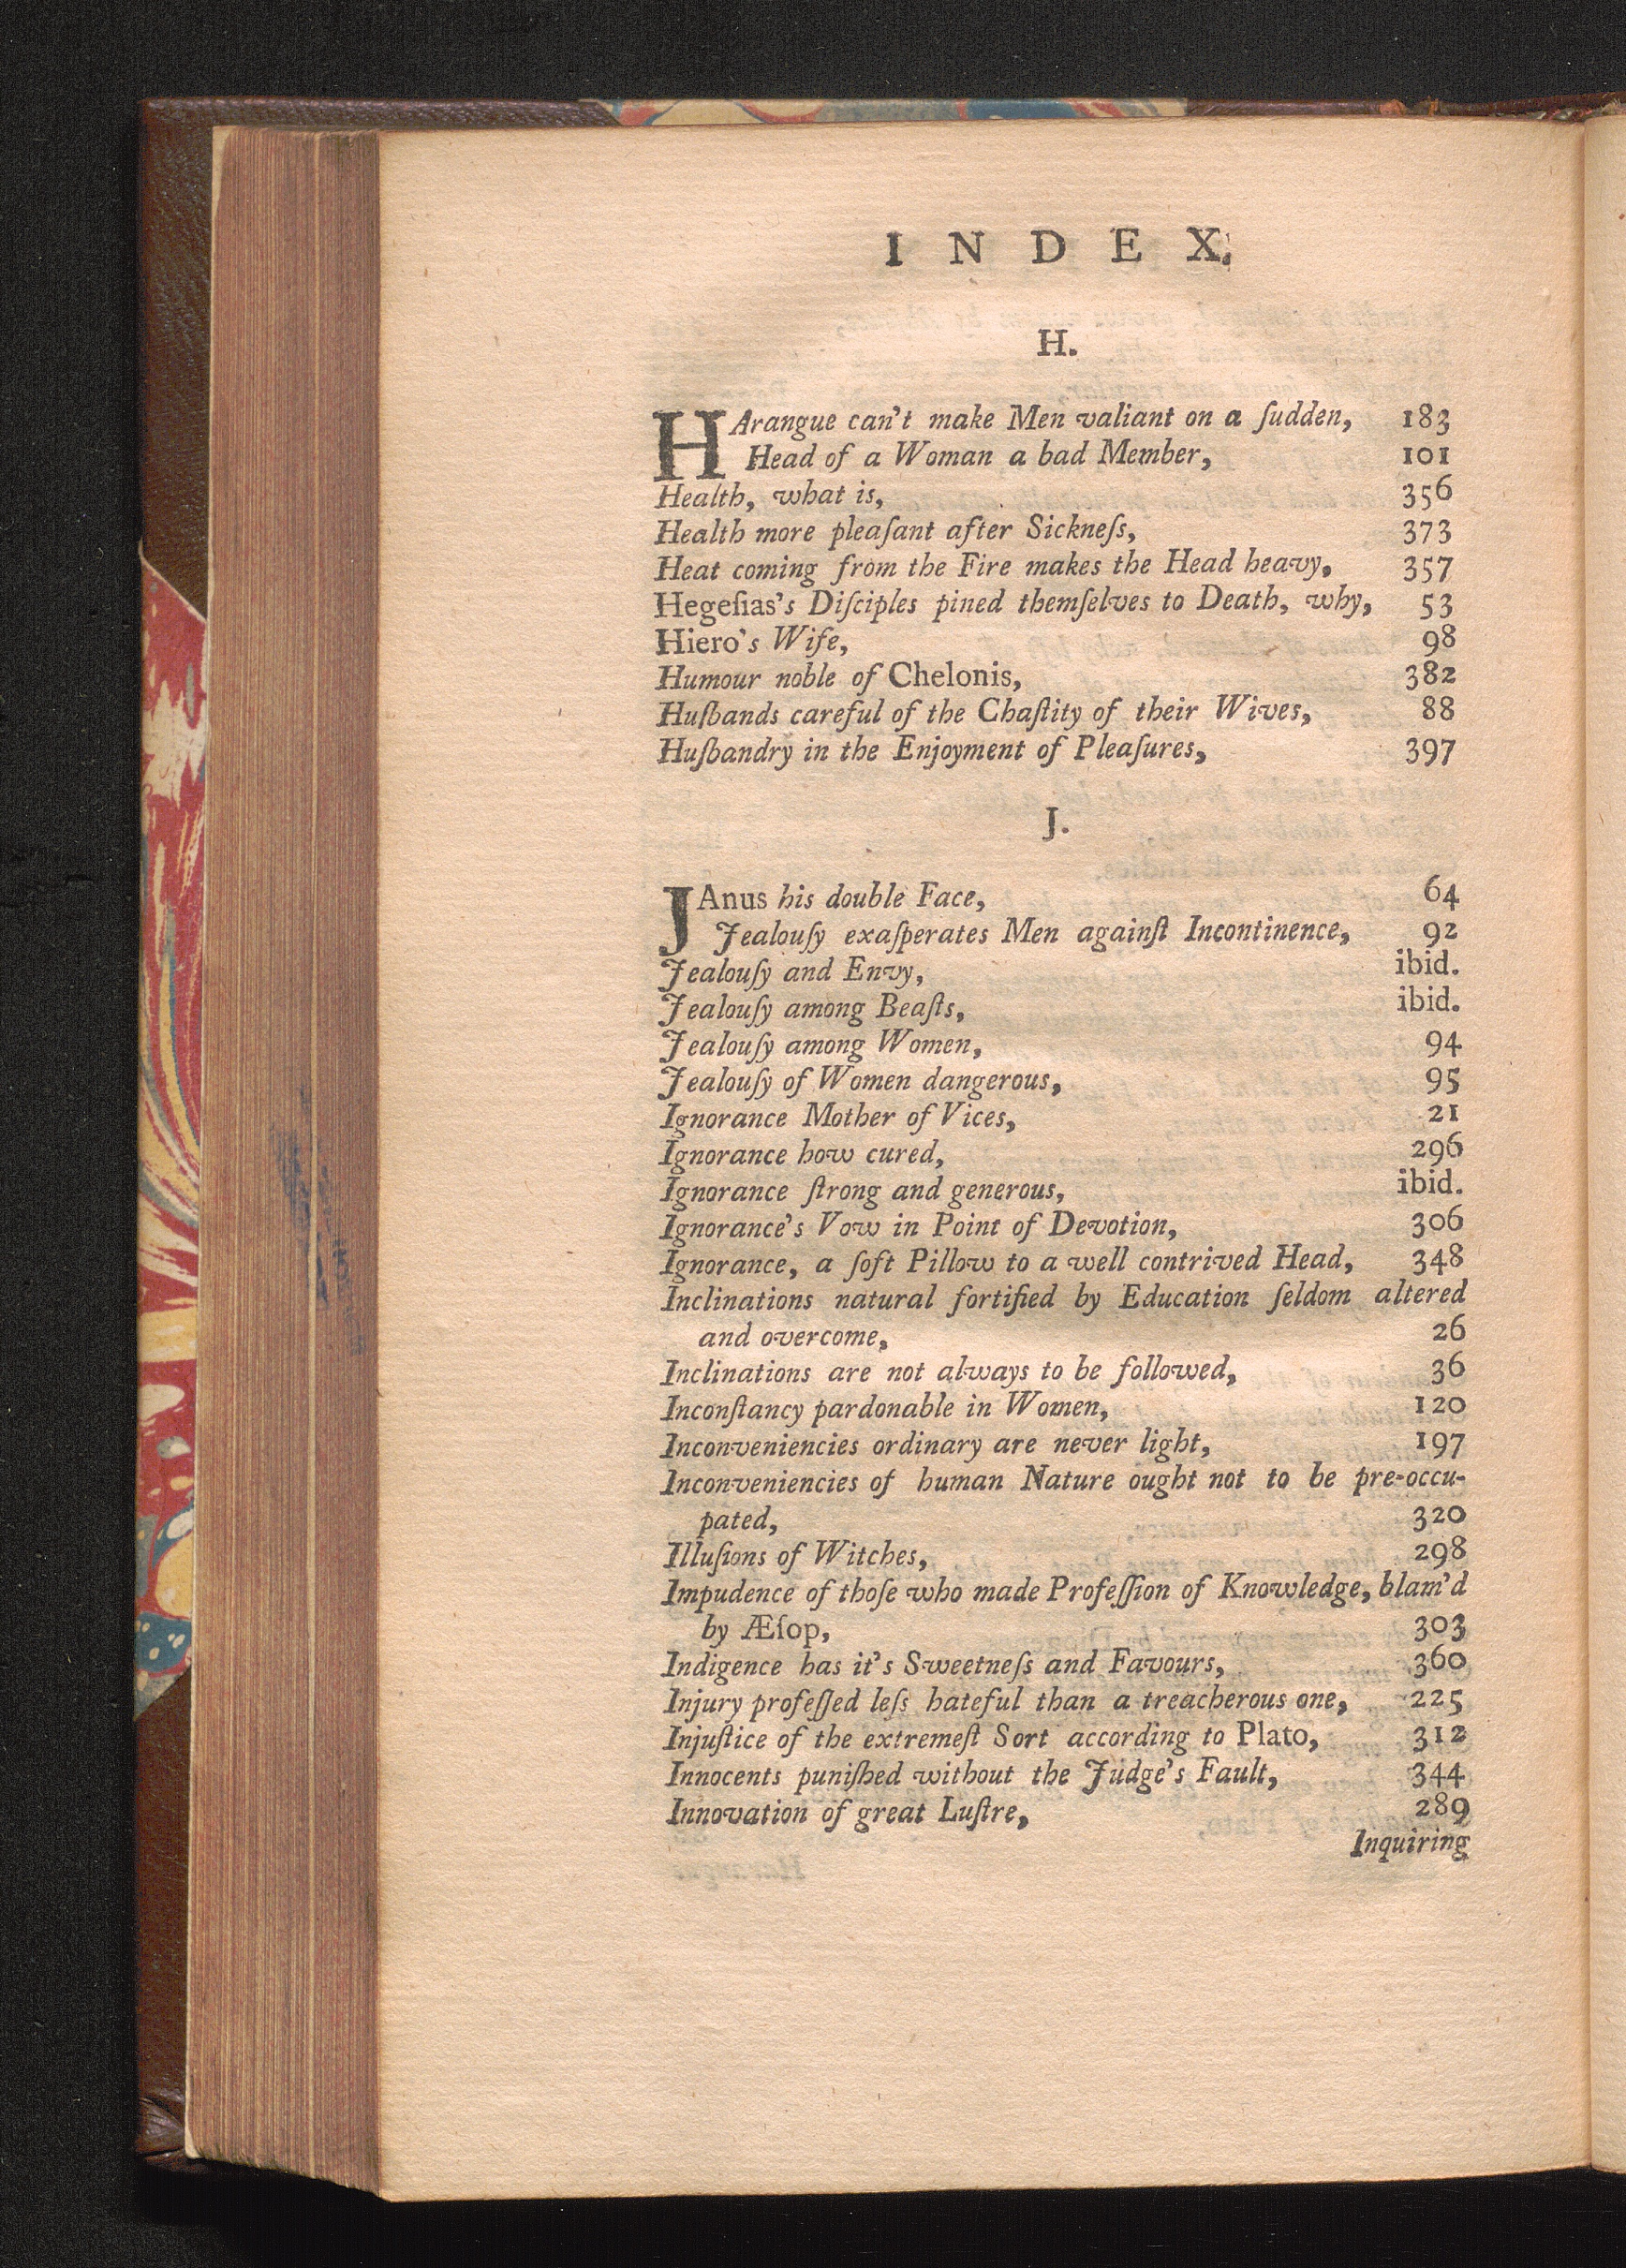 INDEX.
H.
HArangue can't make Men valiant on a ſudden, 183
Head of a Woman a bad Member, 101
Health, what is, 356
Health more pleaſant after Sickneſs, 373
Heat coming from the Fire makes the Head heavy, 357
Hegeſias's Diſciples pined themſelves to Death, why, 53
Hiero's Wife, 98
Humour noble of Chelonis, 382
Huſbands careful of the Chaſtity of their Wives, 88
Huſbandry in the Enjoyment of Pleaſures, 397
J.
JAnus his double Face, 64
Jealouſy exaſperates Men againſt Incontinence, 92
Jealouſy and Envy, ibid.
Jealouſy among Beaſts, ibid.
Jealouſy among Women, 94
Jealouſy of Women dangerous, 95
Ignorance Mother of Vices, 21
Ignorance how cured, 296
Ignorance ſtrong and generous, ibid.
Ignorance's Vow in Point of Devotion, 306
Ignorance, a ſoft Pillow to a well contrived Head, 348
Inclinations natural fortified by Education ſeldom altered
and overcome, 26
Inclinations are not always to be followed, 36
Inconſtancy pardonable in Women, 120
Inconveniencies ordinary are never light, 197
Inconveniencies of human Nature ought not to be pre-occu-
pated, 320
Illuſions of Witches, 298
Impudence of thoſe who made Profeſſion of Knowledge, blam'd
by Æſop, 303
Indigence has it's Sweetneſs and Favours, 360
Injury profeſſed leſs hateful than a treacherous one, 225
Injuſtice of the extremeſt Sort according to Plato, 312
Innocents puniſhed without the Judge's Fault, 344
Innovation of great Luſtre, 289
Inquiring